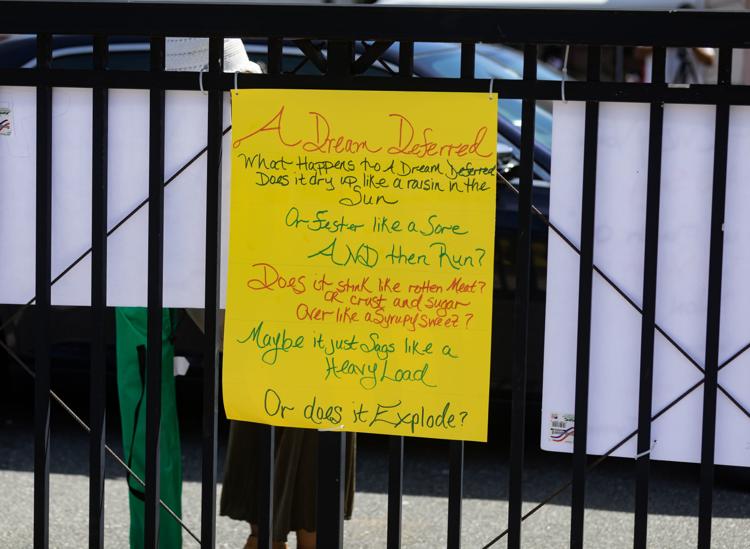 A Dream Deferred
What Happens to A Dream Deferred
Does it dry up like a raisin in the
Sun
Or Fester like a Sore
AND then Run?
Does it stink like rotten Meat?
OR crust and sugar
Over like a Syrupy Sweet?
Maybe it just Sags like a
Heavy Load
Or does it Explode?